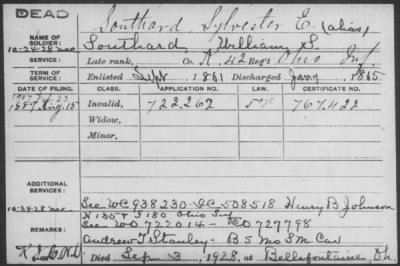 DEAD
Southard, Sylvester E. (alias)
NAME OF SOLDIER: Southard, William S.
10-24-28
SERVICE: Late rank, Co. A, 42 Reg't Ohio Inf.
TERM OF SERVICE: Enlisted Sept 1861 Discharged Jany, 1865
DATE OF FILING. CLASS. APPLICATION NO. LAW. CERTIFICATE NO.
1889 Aug. 15 Invalid, 722.262 767.422
Widow,
Minor,
ADDITIONAL SERVICES:
10-24-28 See WC 938230 508518 Henry B Johnson
H 135 & I 180 Ohio Inf
See WO 722014 - CO 727798
REMARKS: Andrew J Stanley - B 5 Mo S M Cav
Died Sep 3, 1928, at Bellefontaine, Oh.